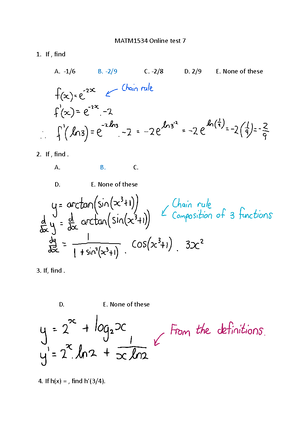 MATM1534 Online test 7
1. If , find
A. -1/6 B. -2/9 C. -2/8 D. 2/9 E. None of these
f(x) = e^{-2x} Chain rule
f'(x) = e^{-2x} . -2
∴ f'(ln3) = e^{-2ln3} . -2 = -2e^{ln3^{-2}} = -2e^{ln(1/9)} = -2(1/9) = -2/9
2. If , find .
A. B. C.
D. E. None of these
y = arctan(sin(x³+1)) Chain rule
d/dx y = d/dx arctan(sin(x³+1)) Composition of 3 functions
dy/dx = 1/(1 + sin²(x³+1)) . cos(x³+1) . 3x²
3. If, find .
D. E. None of these
y = 2^x + log₂x
y' = 2^x . ln2 + 1/(x ln2) From the definitions.
4. If h(x) = , find h'(3/4).